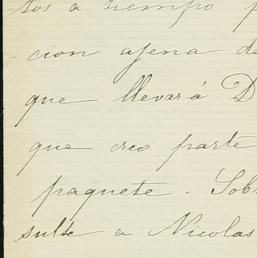 tos a tiempo p
-cion ajena de
que llevará D
que creo parte
paquete. Sob
sulte a Nicolas